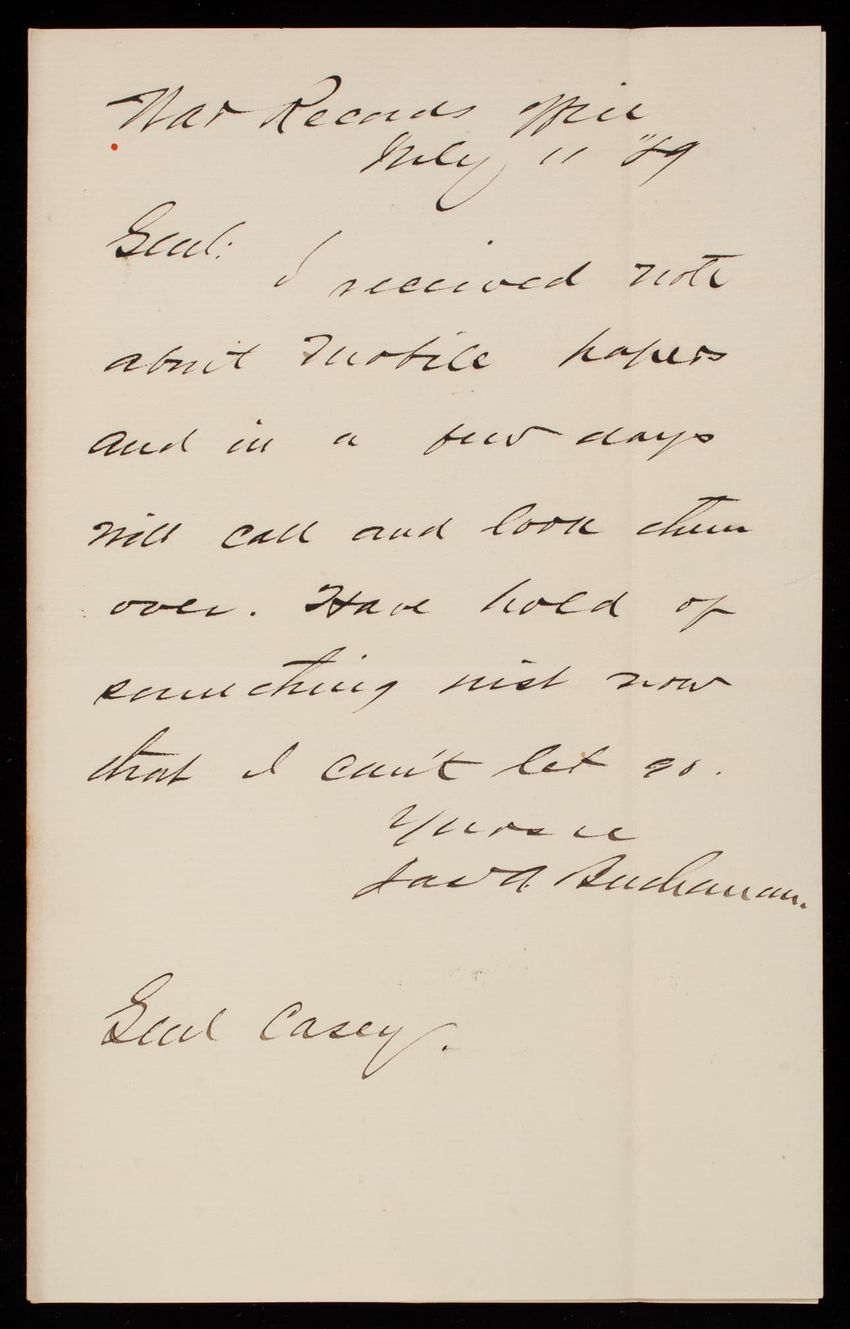 War Records Office
July 11 "89
Genl:
I received note
about Mobile papers
and in a few days
will call and look them
over. Have hold of
something just now
that I can't let go.
Yours &c
Buchanan.
Genl Casey.